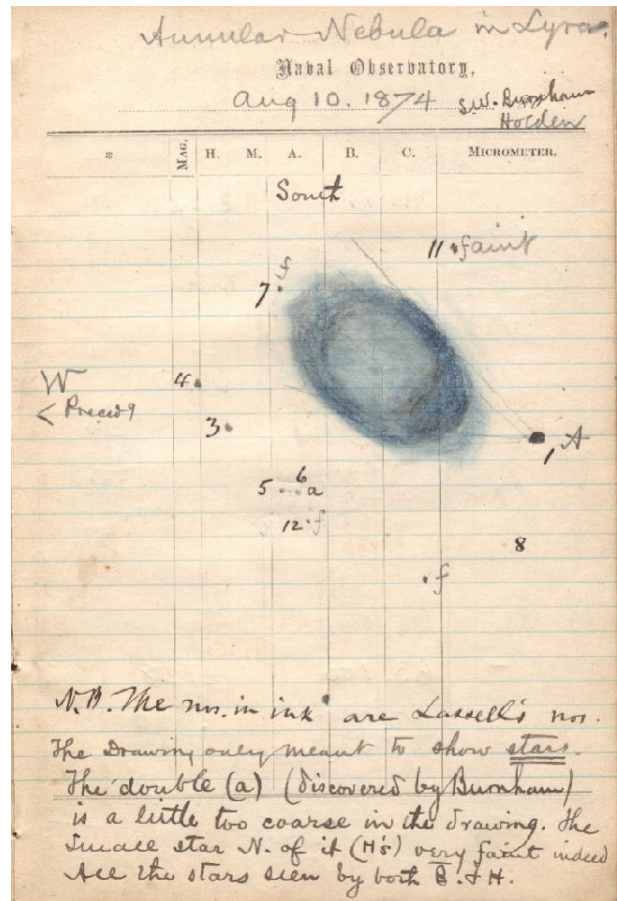 Annular Nebula in Lyra.
Naval Observatory,
Aug 10. 1874
S.W. Burnham
Holden
* MAG. H. M. A. B. C. MICROMETER.
South
11 faint
7 f
W
4
< Preced g
3
1 A
5 6 a
12 f
8
f
N.B. The nos. in ink are Lassell's nos.
The Drawing only meant to show stars.
The double (a) (discovered by Burnham)
is a little too coarse in the drawing. The
small star N. of it (H's) very faint indeed
All the stars seen by both B. & H.